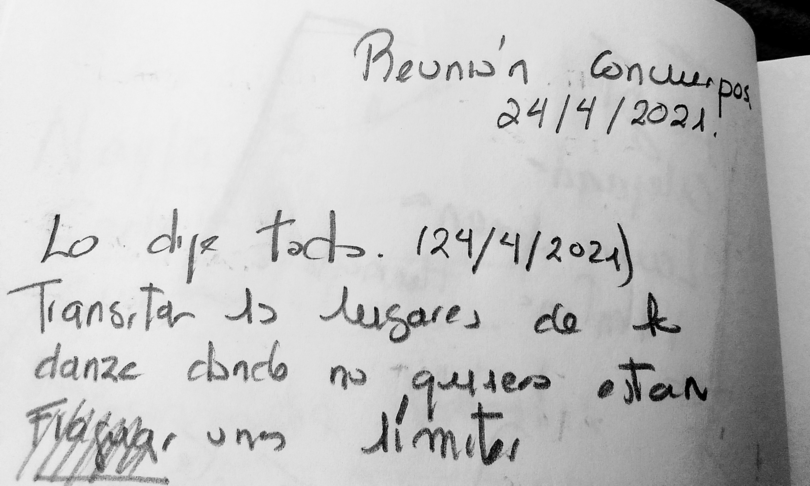 Reunión concuerpos
24/4/2021.
Lo dije todo. (24/4/2021)
Transitar los lugares de la
danza donde no quiero estar
unos límites